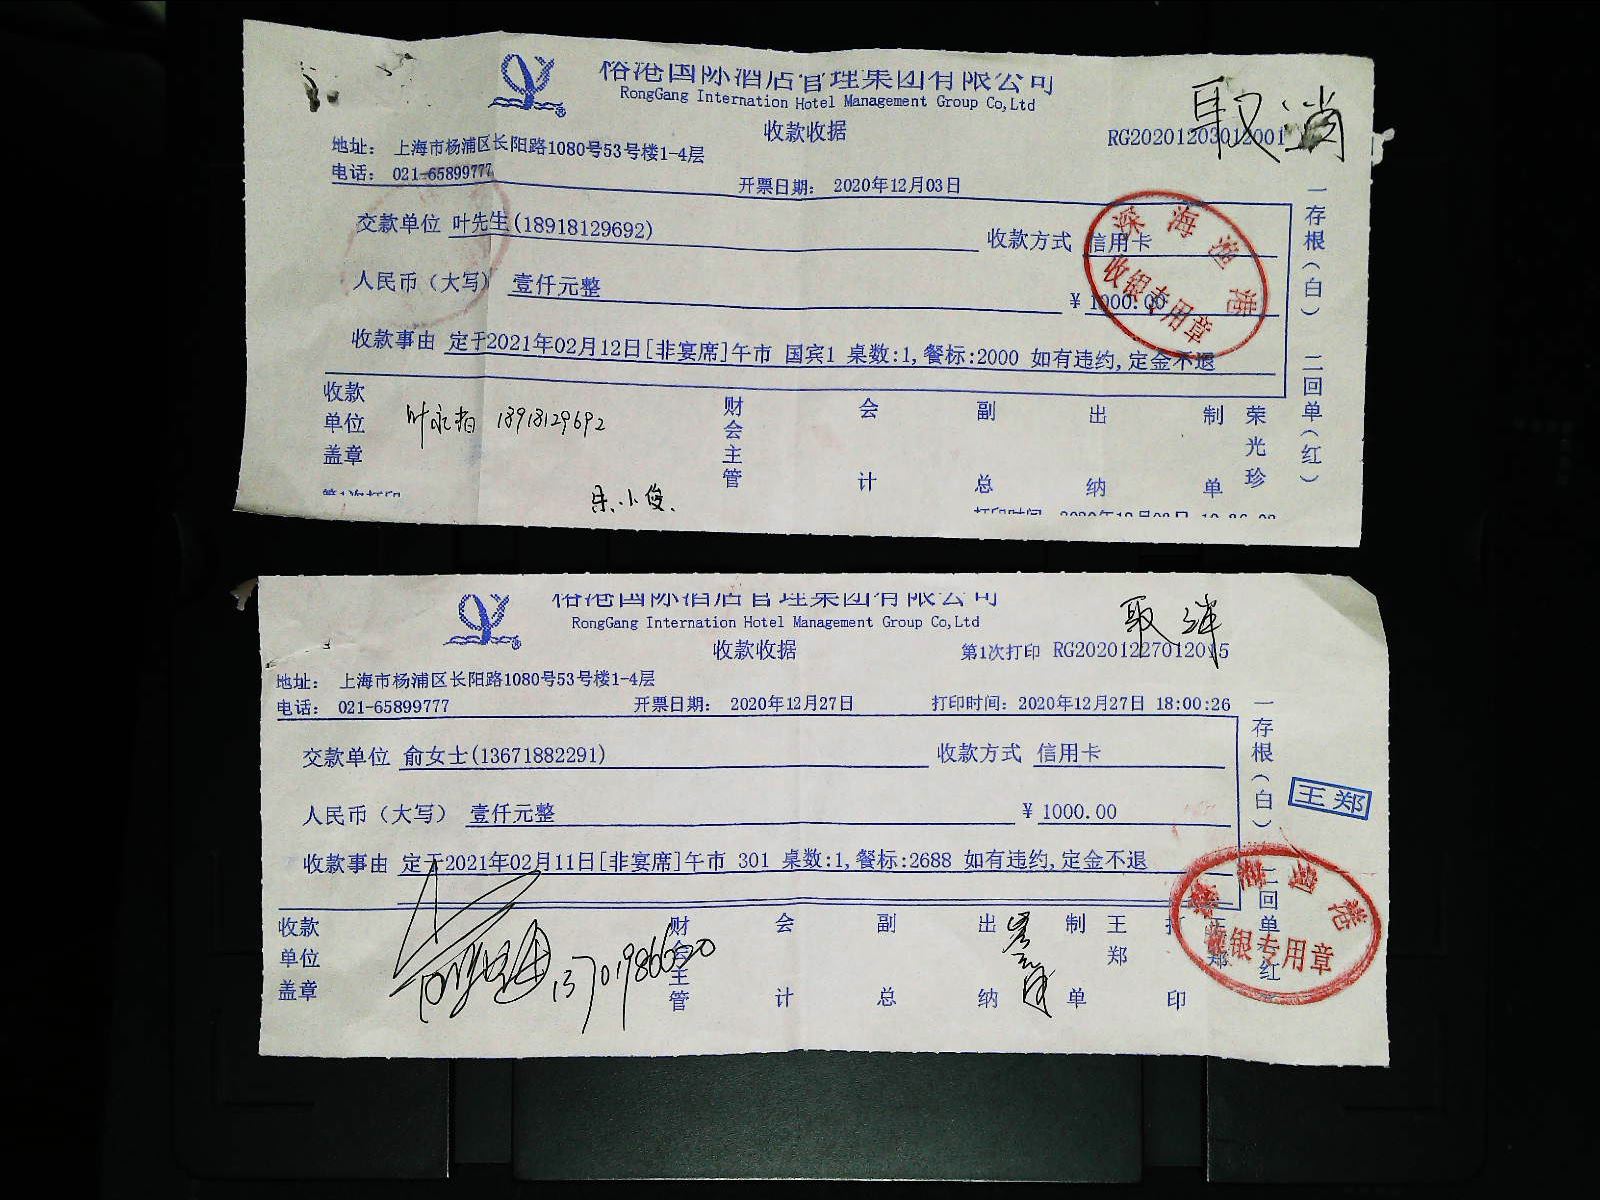 裕港国际酒店管理集团有限公司
RongGang Internation Hotel Management Group Co,Ltd
取消
收款收据
RG20201203012001
地址： 上海市杨浦区长阳路1080号53号楼1-4层
电话： 021-65899777
开票日期： 2020年12月03日
交款单位 叶先生(18918129692) 收款方式 信用卡
人民币（大写） 壹仟元整 ￥ 1000.00
收款事由 定于2021年02月12日[非宴席]午市 国宾1 桌数:1,餐标:2000 如有违约,定金不退
一存根（白） 二回单（红）
深海渔港
收银专用章
收款单位盖章 18918129692 财会主管 会计 副总 出纳 制单 荣光珍
第1次打印
朱小俊.
打印时间 2020年12月03日
裕港国际酒店管理集团有限公司
RongGang Internation Hotel Management Group Co,Ltd
取消
收款收据
第1次打印 RG20201227012015
地址： 上海市杨浦区长阳路1080号53号楼1-4层
电话： 021-65899777 开票日期： 2020年12月27日 打印时间：2020年12月27日 18:00:26
交款单位 俞女士(13671882291) 收款方式 信用卡
人民币（大写） 壹仟元整 ￥ 1000.00
收款事由 定于2021年02月11日[非宴席]午市 301 桌数:1,餐标:2688 如有违约,定金不退
一存根（白） 二回单（红
王郑
深海渔港
收银专用章
收款单位盖章 13701986620 财会主管 会计 副总 出纳 制单 王郑 打印 王郑